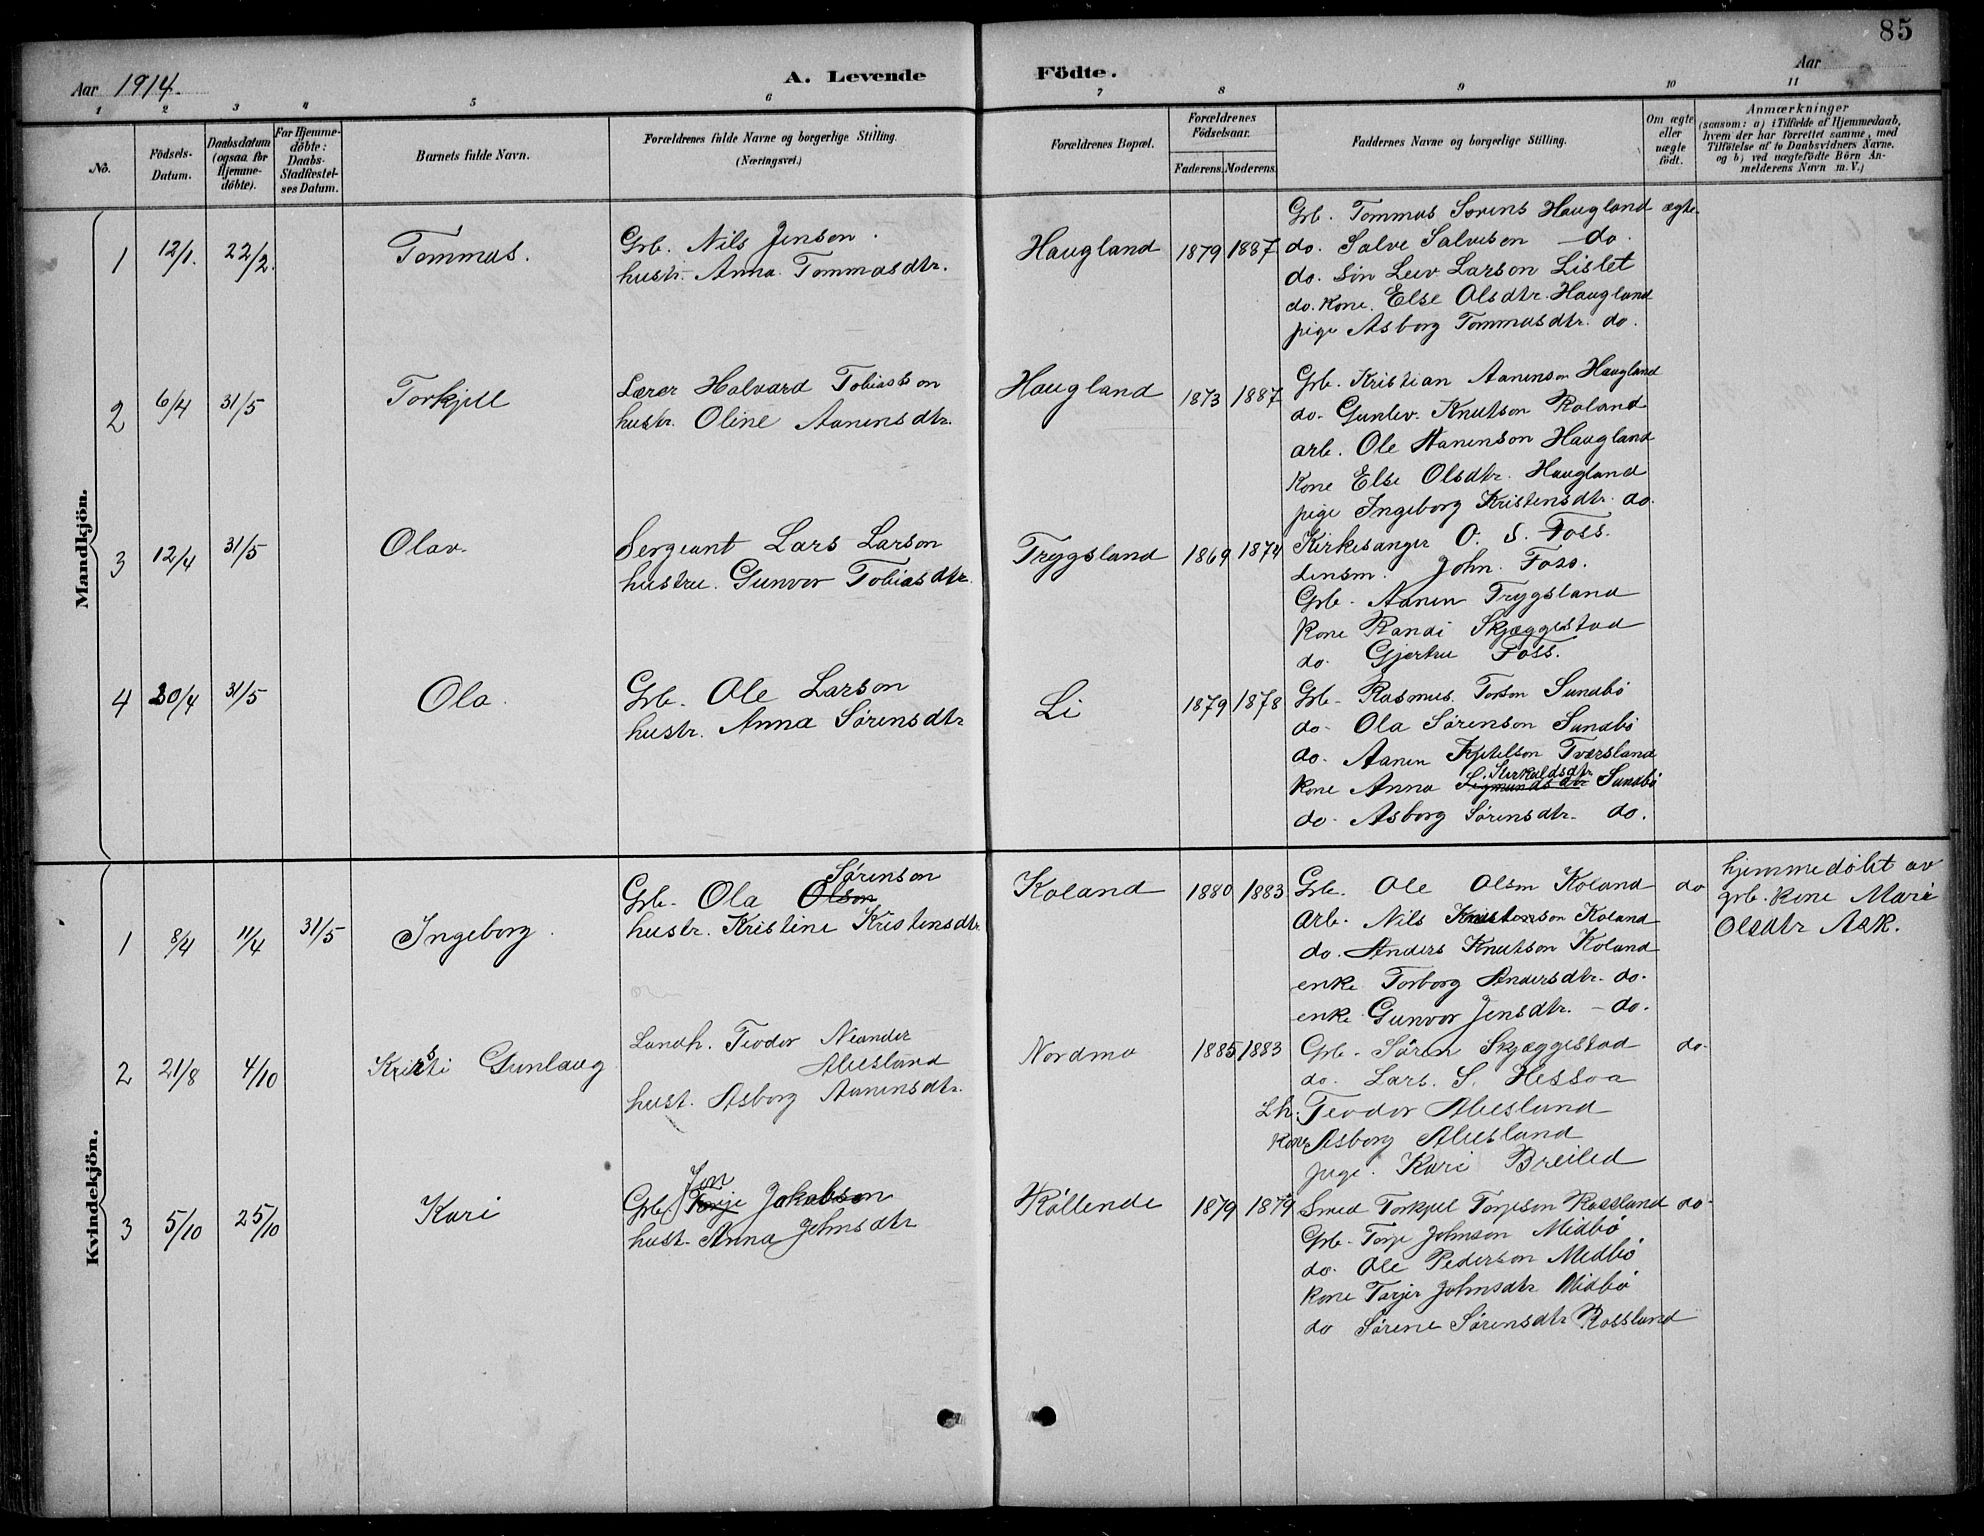 85
Aar 1914.
A. Levende Födte.
Aar
1 2 3 4 5 6 7 8 9 10 11
No.
Födsels-Datum.
Daabsdatum (ogsaa for Hjemme-döbte).
For Hjemme-döbte: Daabs-Stadfæstel-ses Datum.
Barnets fulde Navn.
Forældrenes fulde Navne og borgerlige Stilling.
(Næringsvei.)
Forældrenes Bopæl.
Forældrenes Födselsaar.
Faderens. Moderens.
Faddernes Navne og borgerlige Stilling.
Om ægte eller uægte födt.
Anmærkninger
(saasom: a) i Tilfælde af Hjemmedaab,
hvem der har forrettet samme, med
Tilföielse af to Daabsvidners Navne.
og b) ved uægtefödte Börn An-
melderens Navn m. V.)
Mandkjön.
1 12/1. 22/2. Tommas.
Grb. Nils Jenson.
hustr. Anna Tommasdtr.
Haugland 1879 1887
Grb. Tommas Sørens Haugland ægte.
do. Salve Salveson - do.
do. søn Leiv Larson Lislet
do. kone. Else Olsdtr. Haugland
pige Asborg Tommasdtr. do.
2 6/4 31/5 Torkjell
Lærer Halvard Tobiasson
hustr. Oline Aanensdtr.
Haugland 1873 1887
Grb. Kristian Aanenson Haugland
do. Gunlev. Knutson Roland
arb. Ole Aanenson Haugland
kone Else Olsdtr. Haugland
pige Ingeborg Kristensdtr. do.
3 12/4 31/5 Olav.
Sergeant Lars Larson
hustru. Gunvor Tobiasdtr.
Trygsland 1869 1874
Kirkesanger O. S. Foss.
Lensm. John. Foss.
Grb. Aanen Trygsland
kone Randi Skjæggestad
do. Gjertru Foss.
4 30/4 31/5 Ola.
Grb. Ole Larson
hustr. Anna Sørensdtr
Li 1879 1878
Grb. Rasmus. Torson Sundbø
do. Ola Sørenson Sundbø
do. Aanen Kjetelson Tversland
Sterkuldsdtr.
kone Anna Sigmundsdtr Sundbø
do. Asborg Sørensdtr. do.
Kvindekjön.
1 8/4 11/4 31/5 Ingeborg.
Sørenson
Grb. Ola Olson
hustr. Kristine Kristensdtr.
Koland 1880 1883
Grb. Ole Olson Koland do
arb. Nils Knutson Koland
do. Anders Knutson Koland
enke Torborg Andersdtr. do.
enke Gunvor Jensdtr. - do.
hjemmedøbt av
grb. kone Mari
Olsdtr Ask.
2 21/8 4/10 Kristi Gunlaug
Landh. Teodor Neander
Abesland
hust. Asborg Aanensdtr.
Nordmo 1885 1883
Grb. Søren Skjæggestad do.
do. Lars. S. Hessaa
Lh. Teodor Abesland
kone Asborg Abesland
pige. Kari Breiled
3 5/10 25/10 Kari
Jon
Grb. Torje Jakobson
hust. Anna Johnsdtr
Røllende 1879 1879
Smed Torkjel Torjeson Rossland do.
Grb. Torje Johnson Midbø
do. Ole Pederson Midbø
kone Tarjer Johnsdtr Midbø
do Sørene Sørensdtr Rossland